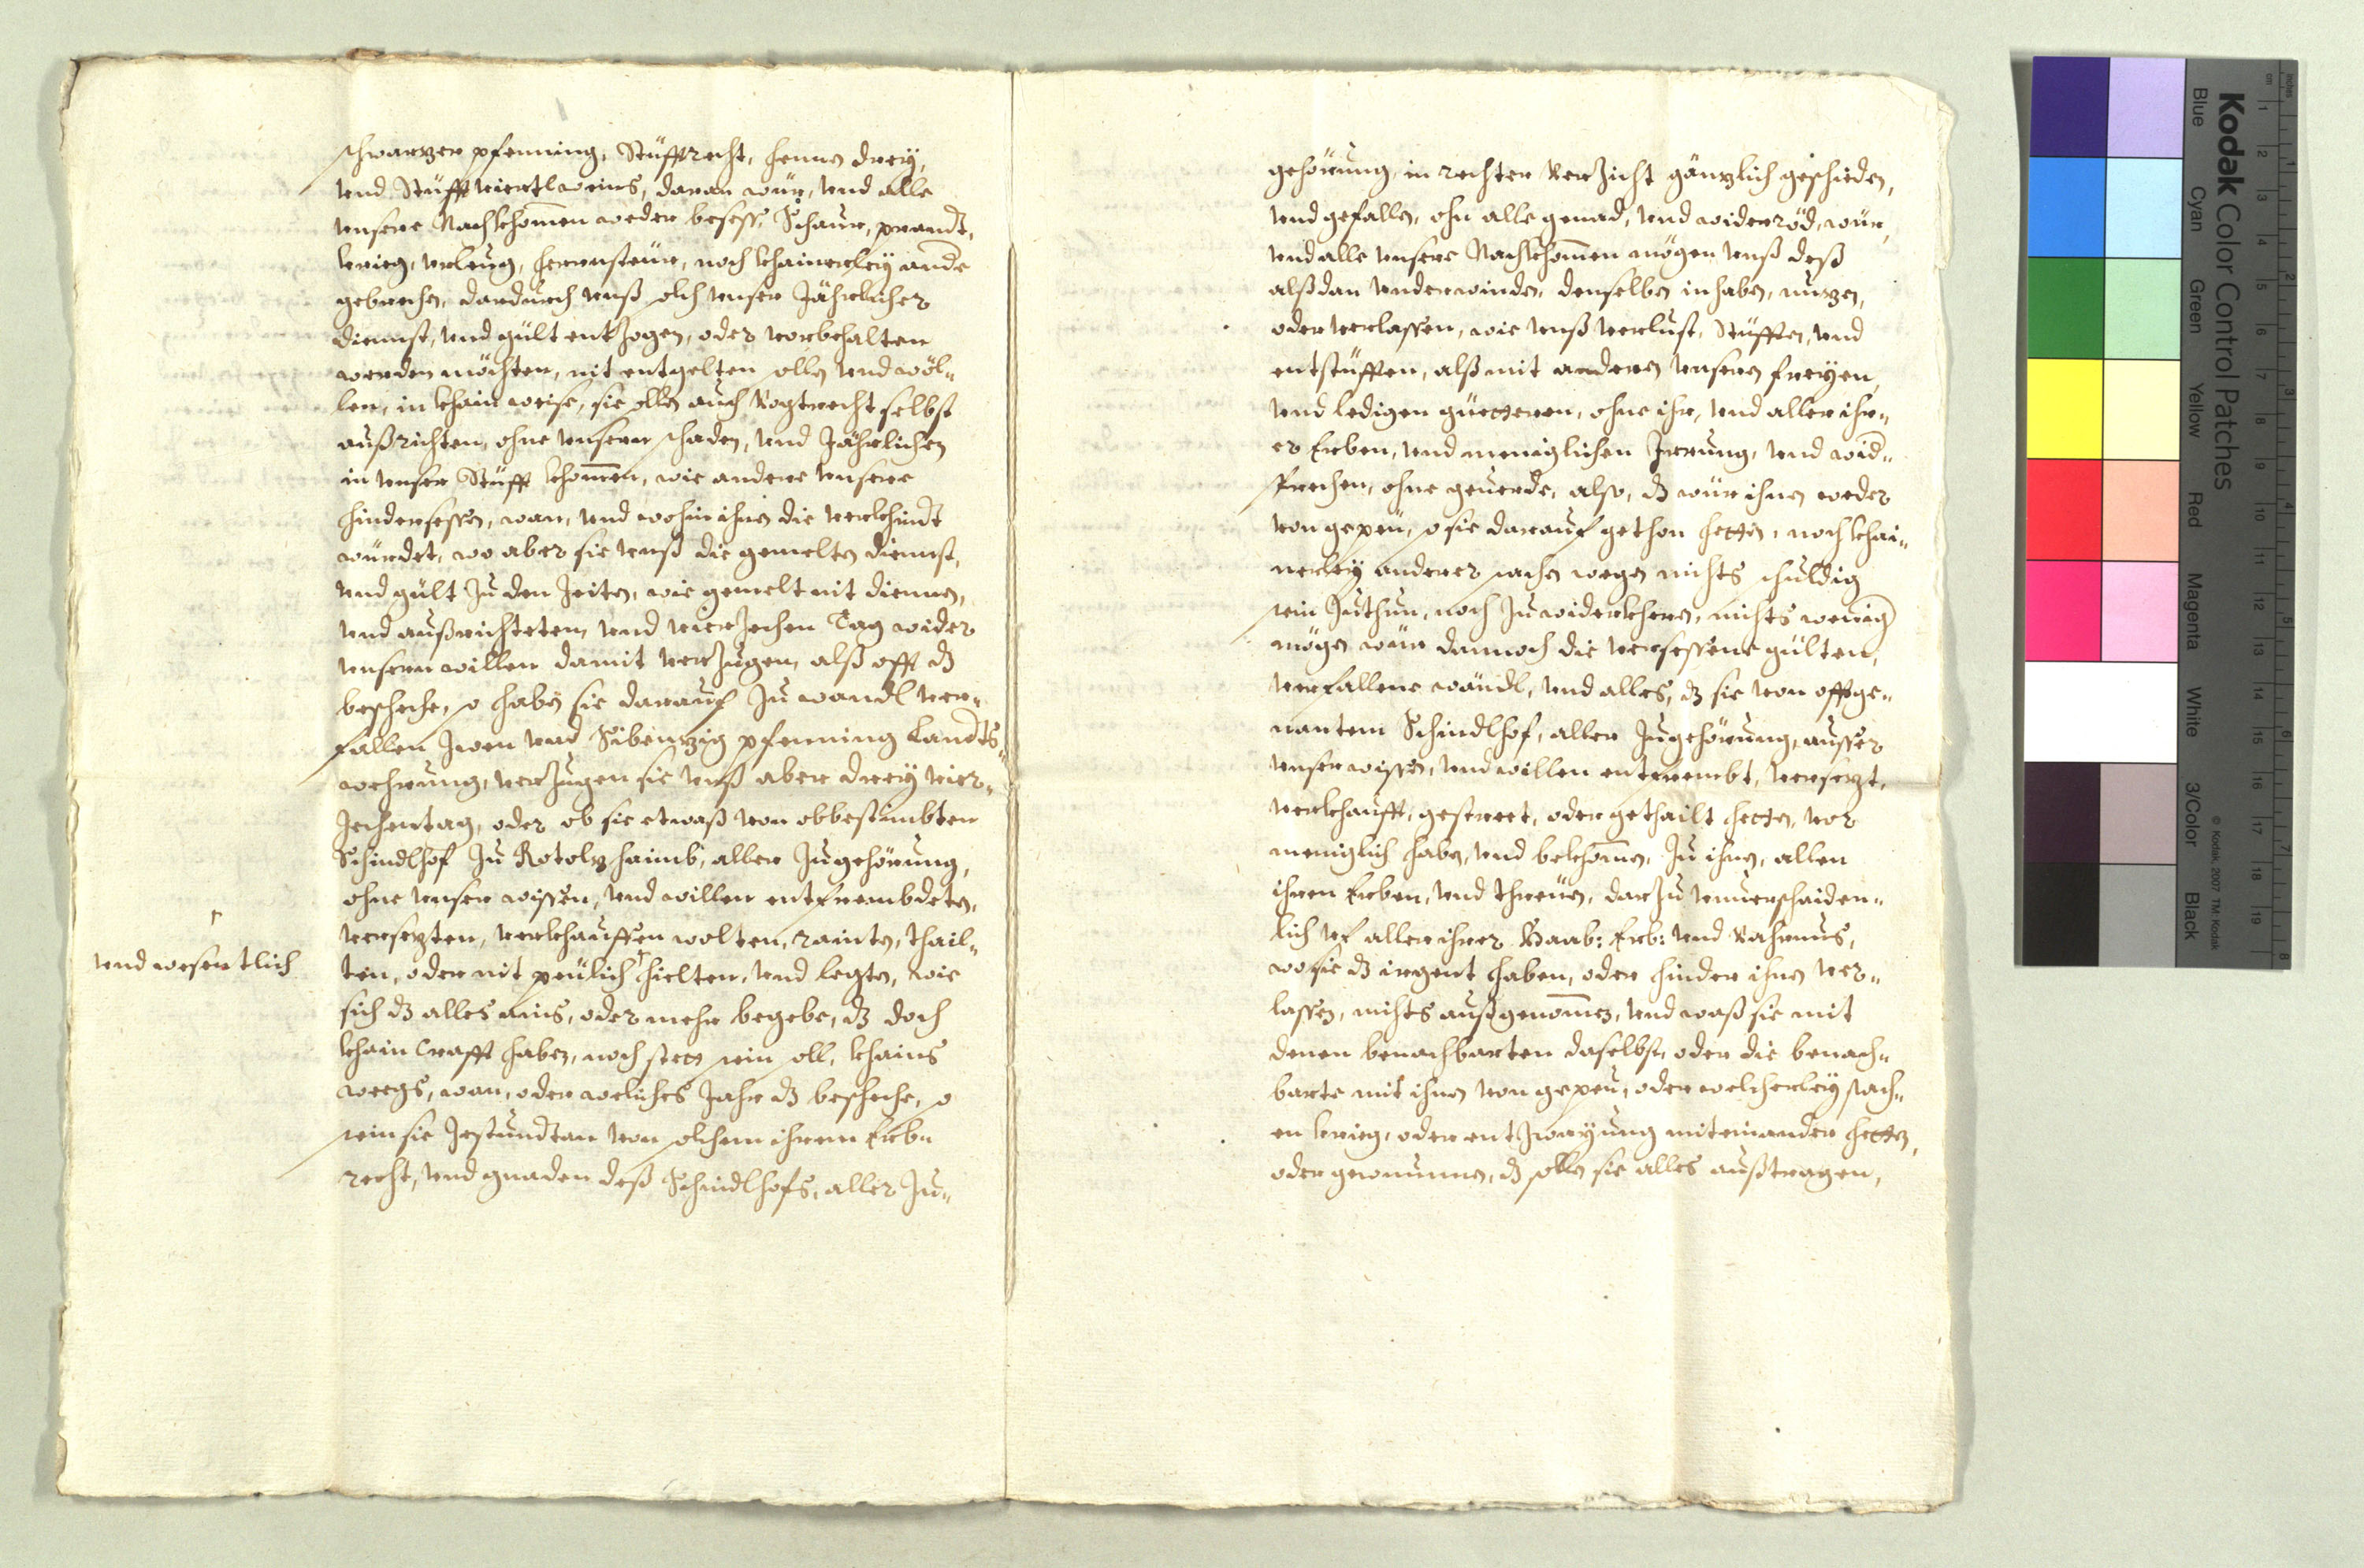 schwarzer pfenning, Stüfftrecht, hennen dreÿ,
vnd Stüfft viertlweins, daran wür, vnd alle
vnsere Nachkhommen weder beseß, Schaur, prandt,
krieg, vrleug, herrnsteür, noch khainerleÿ ande
gebrechen, dardurch vnß solch vnser Jährlicher
diennst, vnd gült entzogen, oder vorbehalten
werden möchten, nit entgelten sollen vnd wöl-
len, in khain weise, sie sollen auch Vogtrecht selbst
außrichten, ohne vnsern schaden, vnd Jährlichen
in vnser Stüfft khommen, wie andere vnsere
hindersessen, wan, vnd wohin ihnen die verkhindt
würdet, wo aber sie vnß die gemelten diennst,
vnd gült zu den zeiten, wie gemelt nit dienen,
vnd außrichteten, vnd vierzechen Tag wider
vnsern willen damit verzugen, alß offt dz
beschehe, so haben sie darauf zu wandl ver-
fallen zwen vnd Sibenzig pfenning Landts-
wehrung, verzugen sie vnß aber dreÿ vier-
zechentag, oder ob sie etwaß von obbestimbten
Schindlhof zu Rotolzhaimb, aller zugehörung,
ohne vnser wissen, vnd willen entfrembdeten,
versezten, verkhauffen wolten, rainten, thail-
vnd wesentlich
ten, oder nit peülich hielten, vnd legten, wie
sich dz alles ains, oder mehr begebe, dz doch
khain Crafft haben, noch stett sein soll, khains
weegs, wan, oder welches Jahr dz beschehe, so
sein sie Jestundtan von solchem ihrem Erb-
recht, vnd gnaden deß Schindlhofs, aller zu-
gehörung, in rechter Verzicht gänzlich geschieden,
vnd gefallen, ohn alle genad, vnd widerröd, wür,
vnd alle vnsere Nachkhommen mögen vnß deß
alßdan vnderwinden, denselben inhaben, nuzen,
oder verlassen, wie vnß verlust, Stüfften, vnd
entstüfften, alß mit anderen vnseren freÿen,
vnd ledigen güetteren, ohne ihr, vnd aller ihr-
er Erben, vnd meniglichen Irrung, vnd wid-
sprechen, ohne geuerde, also, dz wür ihnen weder
von gepeü, so sie darauf gethon hetten, noch khai-
nerleÿ anderer sachen wegen nichts schuldig
sein zuthun, noch zu widerkheren, nichts wenig
mögen wür dannoch die versessene gülten,
verfallene wändl, vnd alles, dz sie von offtge-
nantem Schindlhof, aller zugehörung, ausser
vnser wissen, vnd willen entfrembt, versezt,
verkhaufft, gesteret, oder gethailt hetten, vor
meniglich haben, vnd bekhommen, zu ihnen, allen
ihren Erben, vnd threüen, darzu vnuerschaiden-
lich vf aller ihrer Haab: Erb: vnd Vahrnus,
wo sie dz irgent haben, oder hinder ihnen ver-
lassen, nichts außgenommen, vnd waß sie mit
denen benachbarten daselbst, oder die benach-
barte mit ihnen von gepeu, oder welcherleÿ sach-
en krieg, oder entzwaÿung miteinander hetten,
oder gewunnen, dz sollen sie alles außtragen,